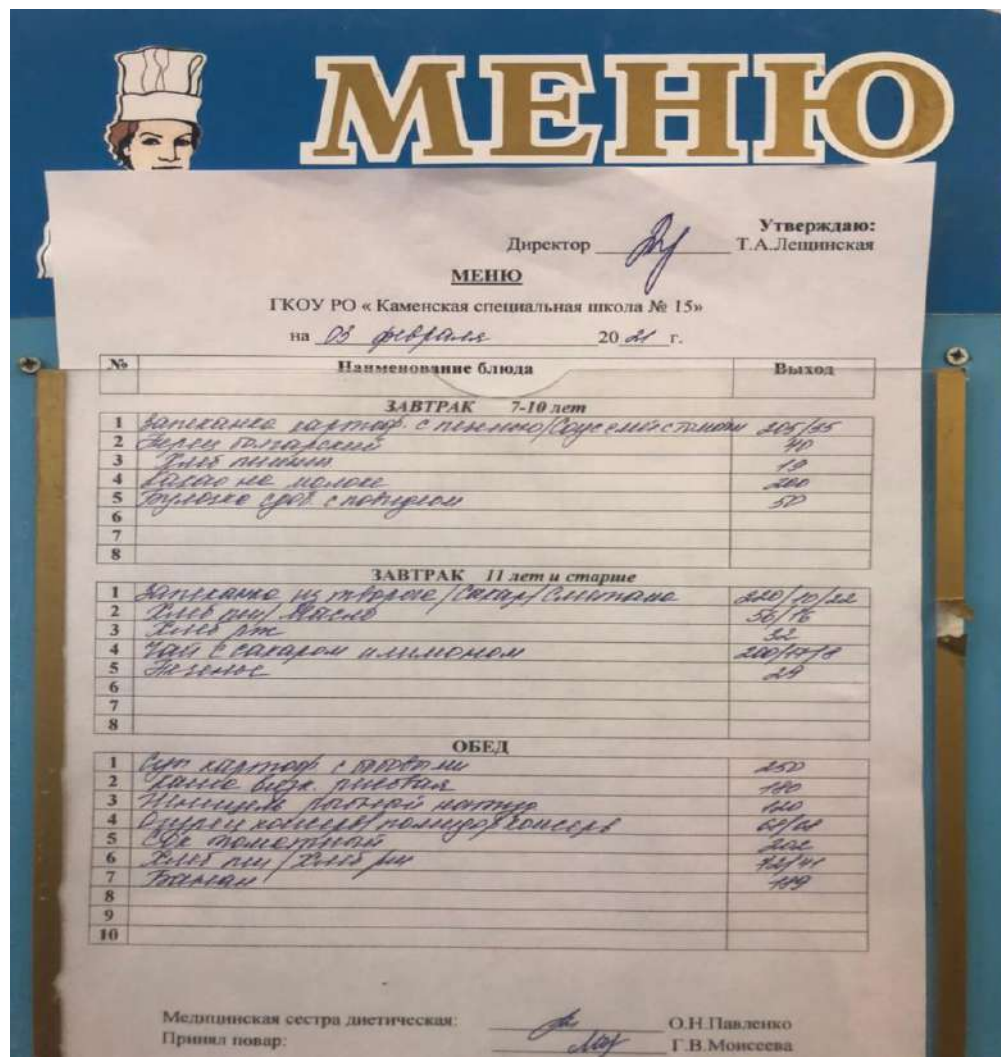 МЕНЮ
Утверждаю:
Директор Т.А.Лещинская
МЕНЮ
ГКОУ РО « Каменская специальная школа № 15»
на 03 февраля 2021 г.
№ Наименование блюда Выход
ЗАВТРАК 7-10 лет
1 Запеканка картоф. с печенью/Соус смет с томатом 205/55
2 Перец болгарский 40
3 Хлеб пшенич 19
4 Какао на молоке 200
5 Булочка сдоб. с повидлом 50
6
7
8
ЗАВТРАК 11 лет и старше
1 Запеканка из творога/Сахар/Сметана 220/10/22
2 Хлеб пш/ Масло 56/16
3 Хлеб рж 32
4 Чай с сахаром и лимоном 200/17/8
5 Печенье 29
6
7
8
ОБЕД
1 Суп картоф с 250
2 Каша вязк. рисовая 180
3 Шницель рыбный натур 120
4 Огурец консерв/помидор консерв 68/68
5 Сок томатный 202
6 Хлеб пш/Хлеб рж 72/41
7 Банан 189
8
9
10
Медицинская сестра диетическая: О.Н.Павленко
Принял повар: Г.В.Моисеева